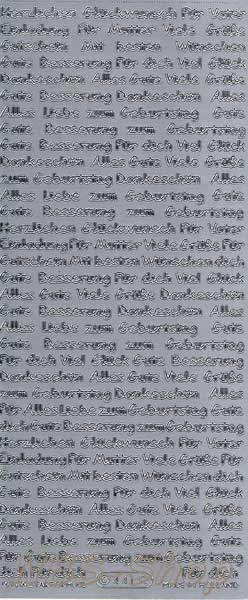 Herzlichen Glückwunsch Für Vater
Einladung Für Mutter Viele Grüße
Gutschein Mit besten Wünschen
Gute Besserung Für dich Viel Glück
Dankeschön Alles Gute Viele Grüße
Gute Besserung Dankeschön Alles
Alles Liebe zum Geburtstag Gute
Gute Besserung zum Geburtstag
Gute Besserung Für dich Viel Glück
Dankeschön Alles Gute Viele Grüße
zum Geburtstag Gute Besserung
Alles Liebe zum Geburtstag Gute
Gute Besserung zum Geburtstag
Herzlichen Glückwunsch Für Vater
Einladung Für Mutter Viele Grüße Für
Gutschein Mit besten Wünschen dich
Gute Besserung Für dich Viel Glück
Alles Gute Viele Grüße Dankeschön
Gute Besserung Dankeschön Alles
Alles Liebe zum Geburtstag Gute
Gute Besserung zum Geburtstag
Für dich Viel Glück Gute Besserung
Dankeschön Alles Gute zum
Für Alles Liebe zum Geburtstag
dich Gute Besserung zum Geburtstag
Herzlichen Glückwunsch Für Vater
Einladung Für Mutter Viele Grüße Für
Gutschein Mit besten Wünschen dich
Gute Besserung Für dich Viel Glück
Dankeschön Alles Gute Viele Grüße
Gute Besserung Dankeschön Alles
Alles Liebe zum Geburtstag Gute
Gute Besserung zum Geburtstag
Für